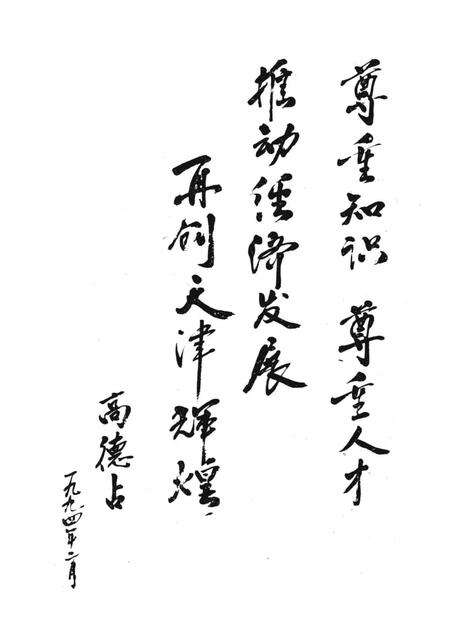 尊重知识 尊重人才
推动经济发展
再创天津辉煌
高德占
一九九四年二月